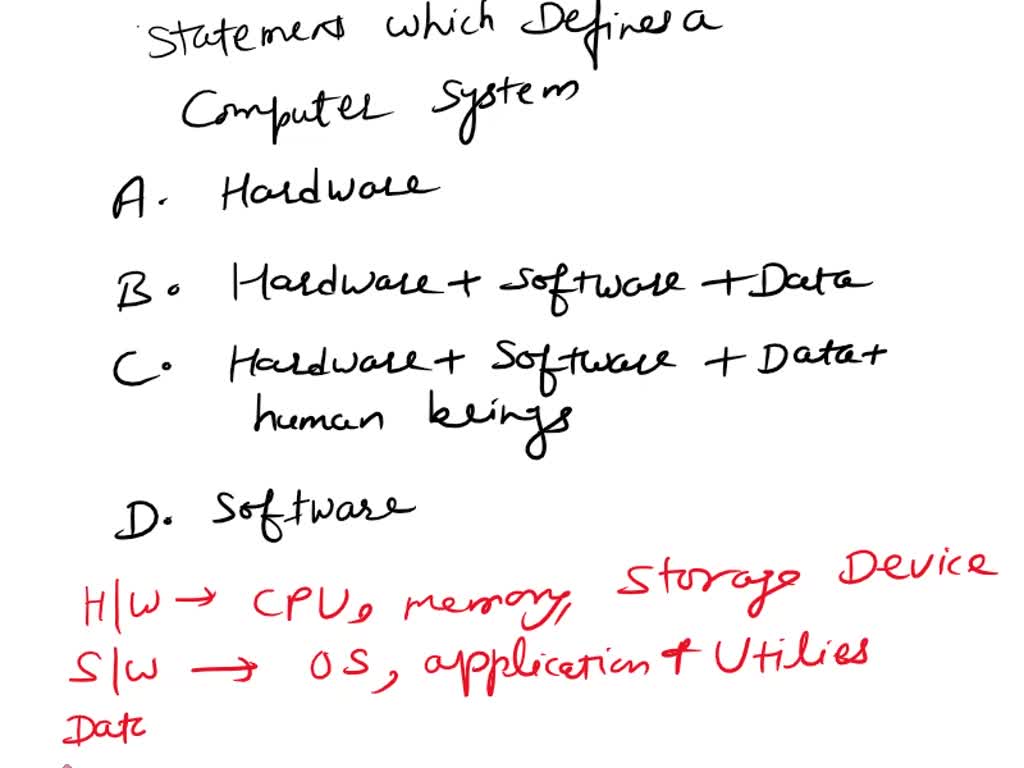 Statement which Defines a
Computer System
A. Hardware
B. Hardware + Software + Data
C. Hardware + Software + Data +
human beings
D. Software
H/W → CPU, memory, Storage Device
S/W → OS, application + Utilies
Data